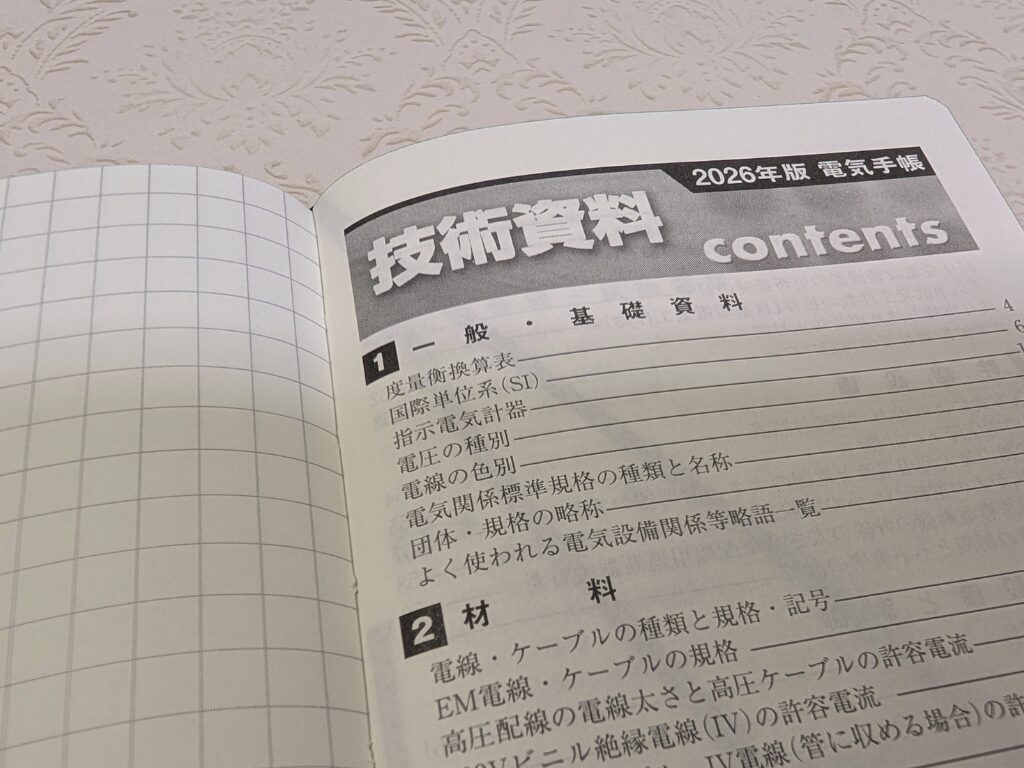 2026年版 電気手帳
技術資料
contents
1 一般・基礎資料
度量衡換算表 4
国際単位系(SI) 6
指示電気計器
電圧の種別
電線の色別
電気関係標準規格の種類と名称
団体・規格の略称
よく使われる電気設備関係等略語一覧
2 材料
電線・ケーブルの種類と規格・記号
EM電線・ケーブルの規格
高圧配線の電線太さと高圧ケーブルの許容電流
ビニル絶縁電線(IV)の許容電流
IV電線(管に収める場合)の許